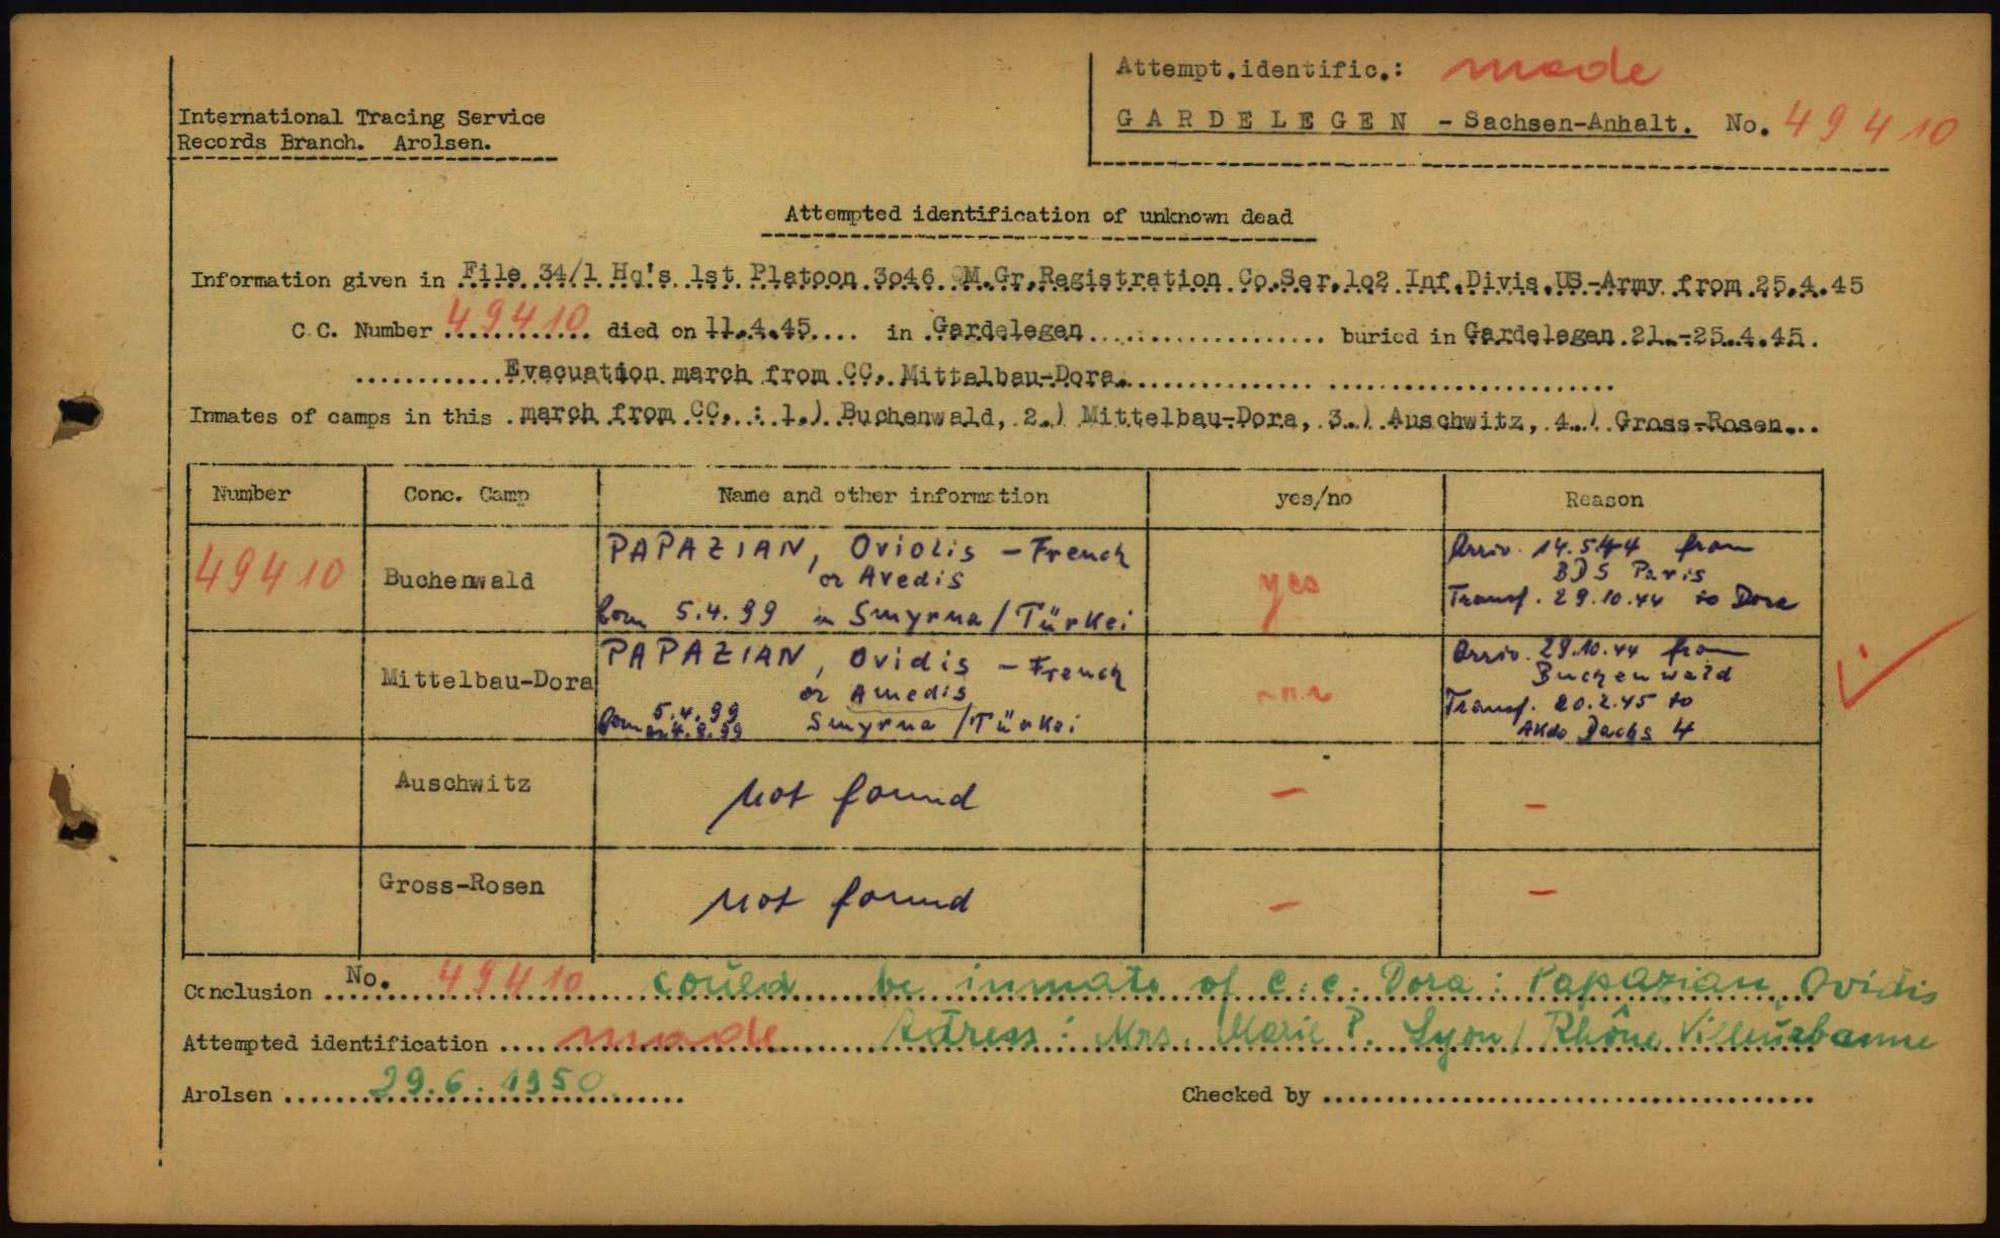 Attempt.identific.: made
International Tracing Service
GARDELEGEN - Sachsen-Anhalt. No. 49410
Records Branch. Arolsen.
Attempted identification of unknown dead
Information given in File 34/1 Hq's 1st Platoon 3046 QM.Gr.Registration Co.Ser.1o2 Inf.Divis.US-Army from 25.4.45
C.C. Number 49410 died on 11.4.45.... in Gardelegen buried in Gardelegen 21.-25.4.45.
Evacuation march from CC. Mittalbau-Dora.
Inmates of camps in this march from CC. : 1.) Buchenwald, 2.) Mittelbau-Dora, 3.) Auschwitz, 4.) Gross-Rosen...
Number Conc. Camp Name and other information yes/no Reason
49410 Buchenwald PAPAZIAN, Oviolis - French yes Arriv. 14.5.44 from
or Avedis BDS Paris
born 5.4.99 in Smyrna/Türkei Transf. 29.10.44 to Dora
Mittelbau-Dora PAPAZIAN, Ovidis - French Arriv. 29.10.44 from
or Amedis Buchenwald
born 5.4.99 Smyrna/Türkei Transf. 20.2.45 to
or 4.8.99 AKdo Dachs 4
Auschwitz not found - -
Gross-Rosen not found - -
Conclusion No. 49410 could be inmate of C.C. Dora: Papazian, Ovidis
Attempted identification made Adress: Mrs. Marie P. Lyon/Rhône Villeurbanne
Arolsen 29.6.1950 Checked by